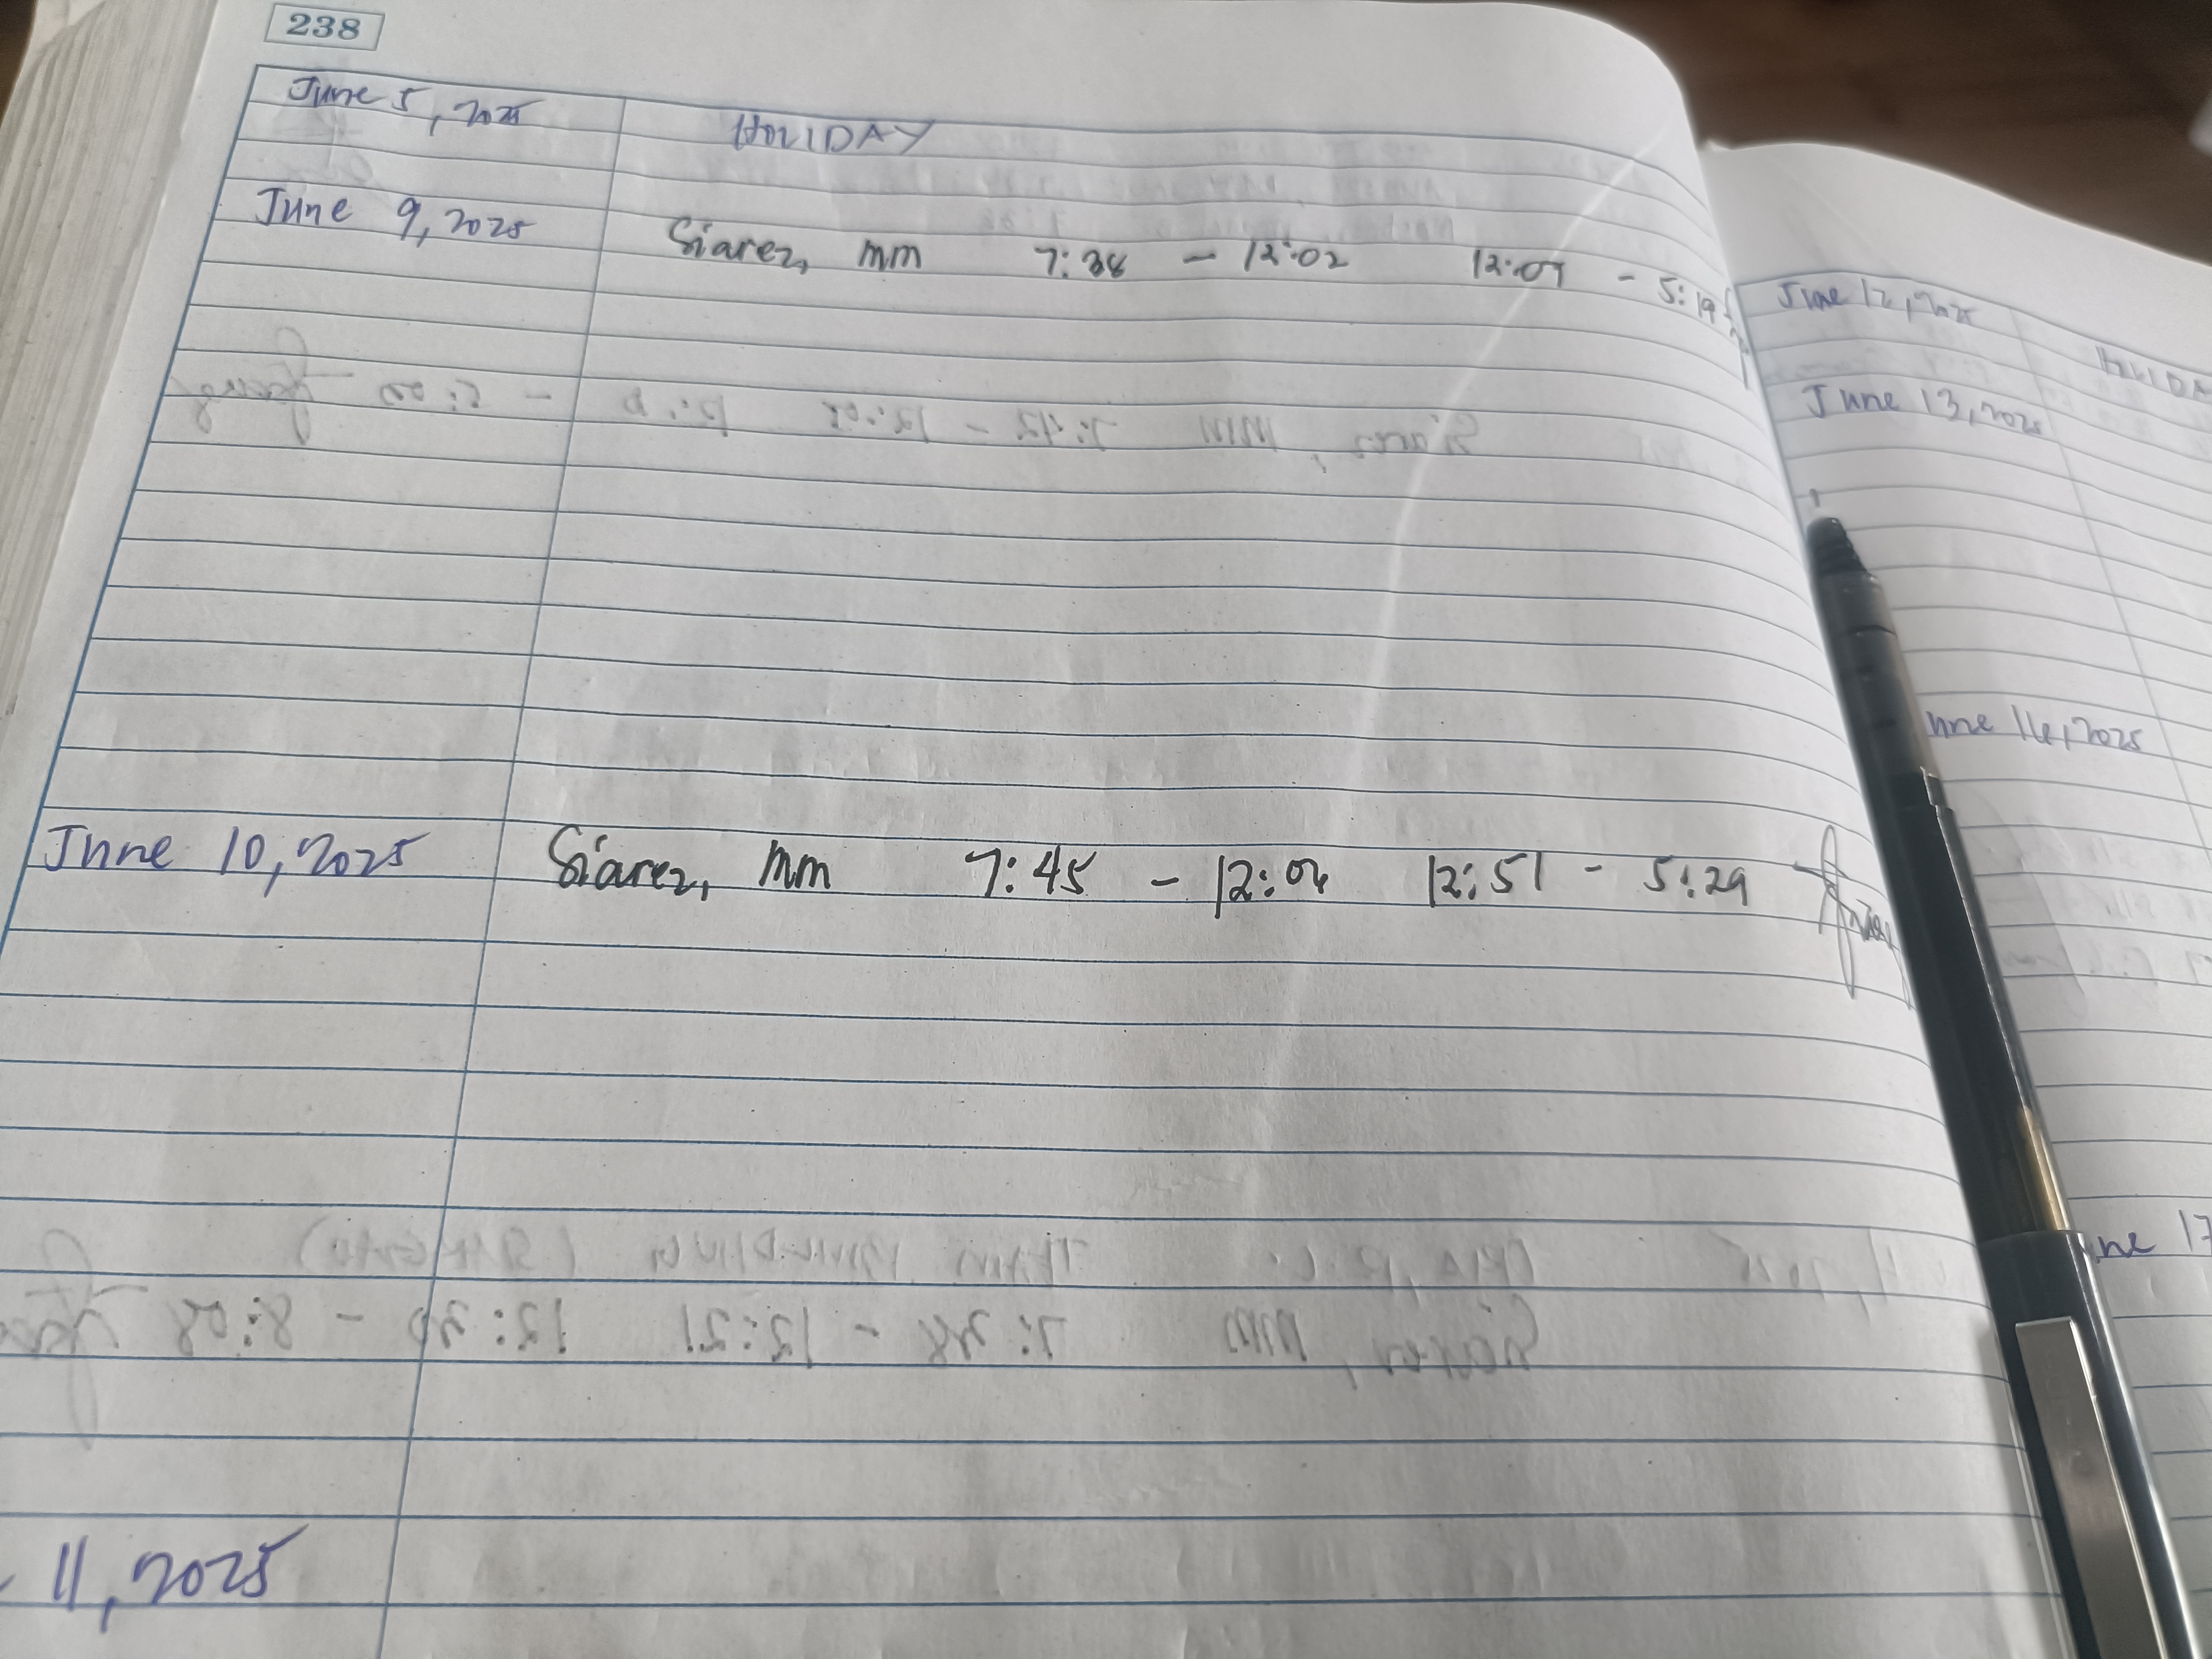 238
June 5, 2025 HOLIDAY
June 9, 2025 Siarez, mm 7:38 - 12:02 12:07 - 5:19
June 10, 2025 Siarez, mm 7:45 - 12:04 12:51 - 5:29
11, 2025
June 12, 2025 HOLIDA
June 13, 2025
une 16, 2025
ne 17